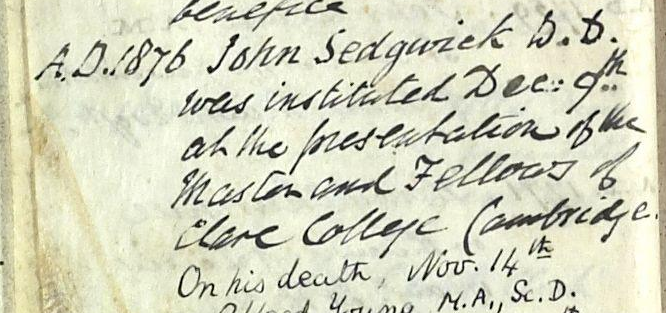 benefice
A.D. 1876 John Sedgwick D.D.
was instituted Dec: 9th
at the presentation of the
Master and Fellows of
Clare College Cambridge.
On his death, Nov. 14th
Alfred Young, M.A., Sc.D.